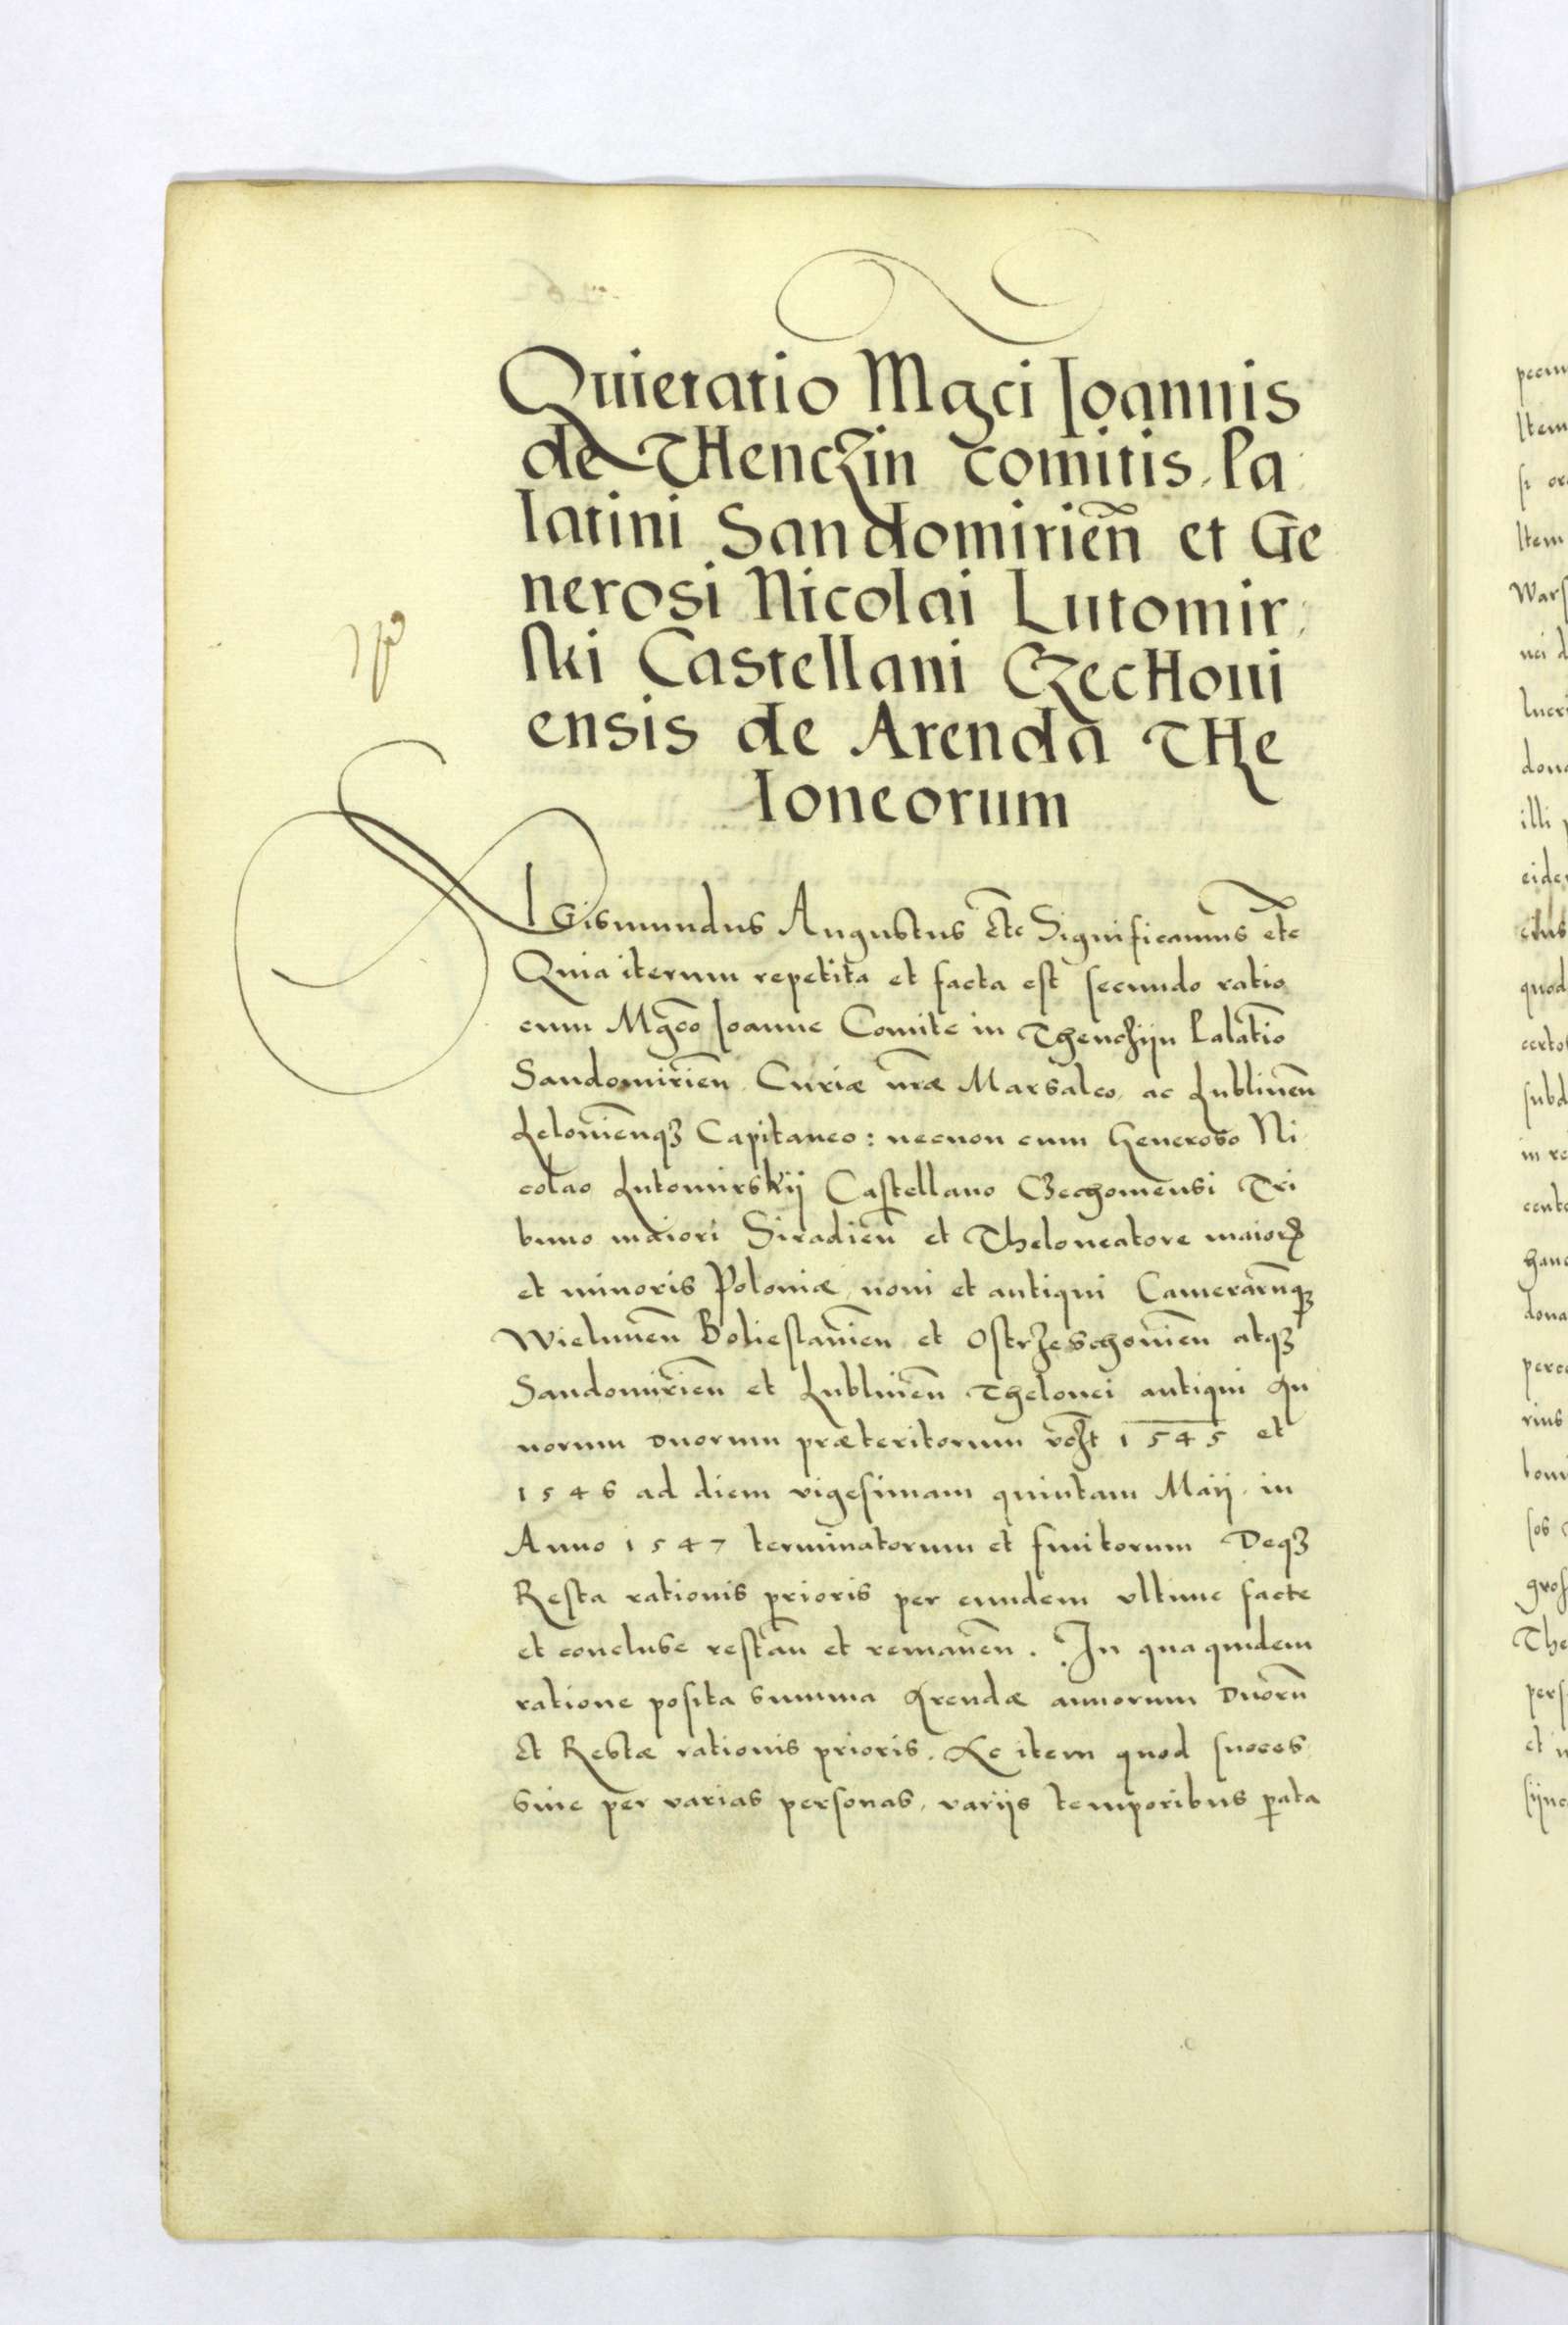 Quietatio Mgci Ioannis
de THenczin comitis Pa
latini Sandomirień et Ge
nerosi Nicolai Lutomir
ski Castellani CzecHoui
ensis de Arenda THe
loneorum
SIGismundus Augustus Etc Significamus etc
Quia iterum repetita et facta est secundo ratio
cum Mgco Ioanne Comite in Thenchijn Palatio
Sandomirien Curiæ nræ Marsalco ac Lublinen
Lelouienqꝫ Capitaneo: necnon cum Generoso Ni
colao Lutomirskij Castellano Czechouiensi Tri
buno maiori Siradien et Theloneatore maioris
et minoris Poloniæ, noui et antiqui Camerarumqꝫ
Wielunen Boliestauien et Ostrzeschouien atqꝫ
Sandomirien et Lublinen Thelonei antiqui An
norum Duorum præteritorum vꝫt 1545 et
1546 ad diem vigesimam quintam Maij in
Anno 1547 terminatorum et finitorum Deqꝫ
Resta rationis prioris per eundem vltime facte
et concluse restan et remanen. In qua quidem
ratione posita summa Arendæ annorum Duorum
Et Restæ rationis prioris. Ac item quod succes
siue per varias personas, varijs temporibus parata